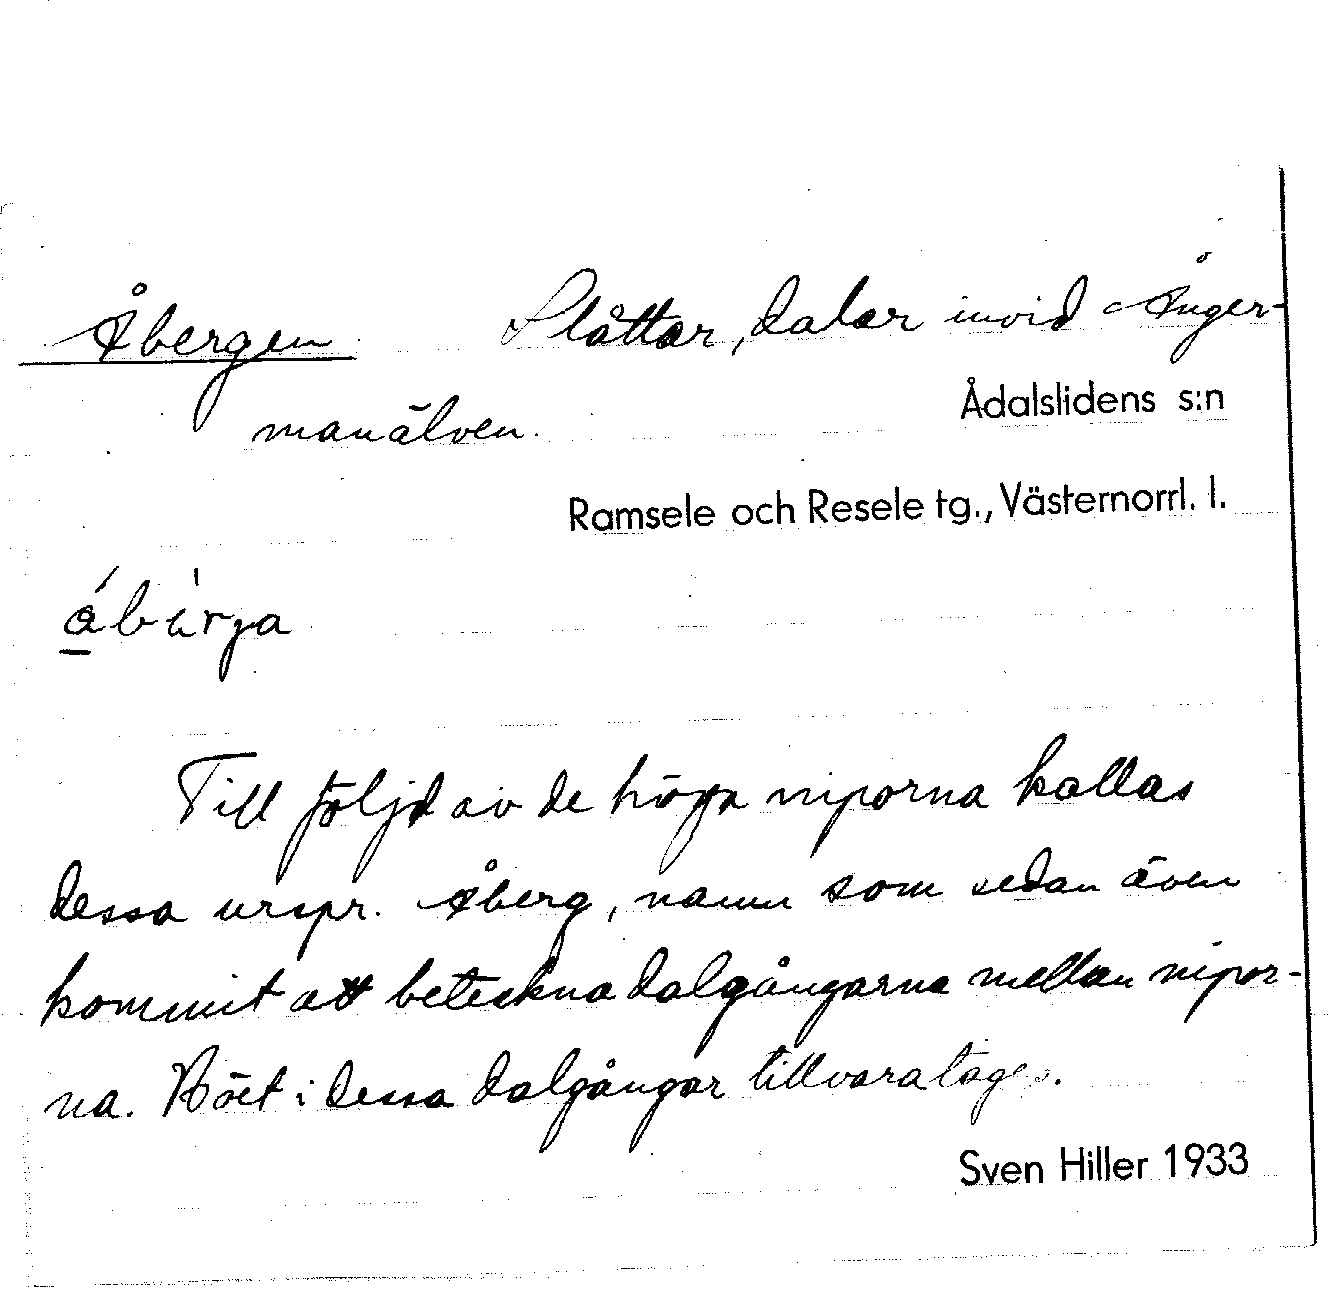 Åbergen Slåttar, dalar invid Ånger-
manälven. Ådalslidens s:n
Ramsele och Resele tg., Västernorrl. l.
Till följd av de höga niporna kallas
dessa urspr. Åberg, namn som sedan även
kommit att beteckna dalgångarna mellan nipor-
na. Höet i dessa dalgångar tillvaratages.
Sven Hiller 1933